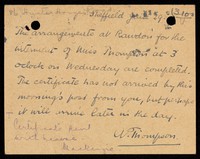 Sheffield
The arrangements at Randon for the
interment of Miss Thompson at 3
o'clock on Wednesday are completed.
The certificate has not arrived by this
morning's post from you, but perhaps
it will arrive later in the day.
N. Thompson
Certificate